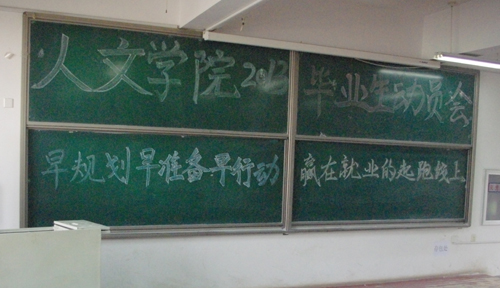 人文学院2012毕业生动员会
早规划早准备早行动 赢在就业的起跑线上